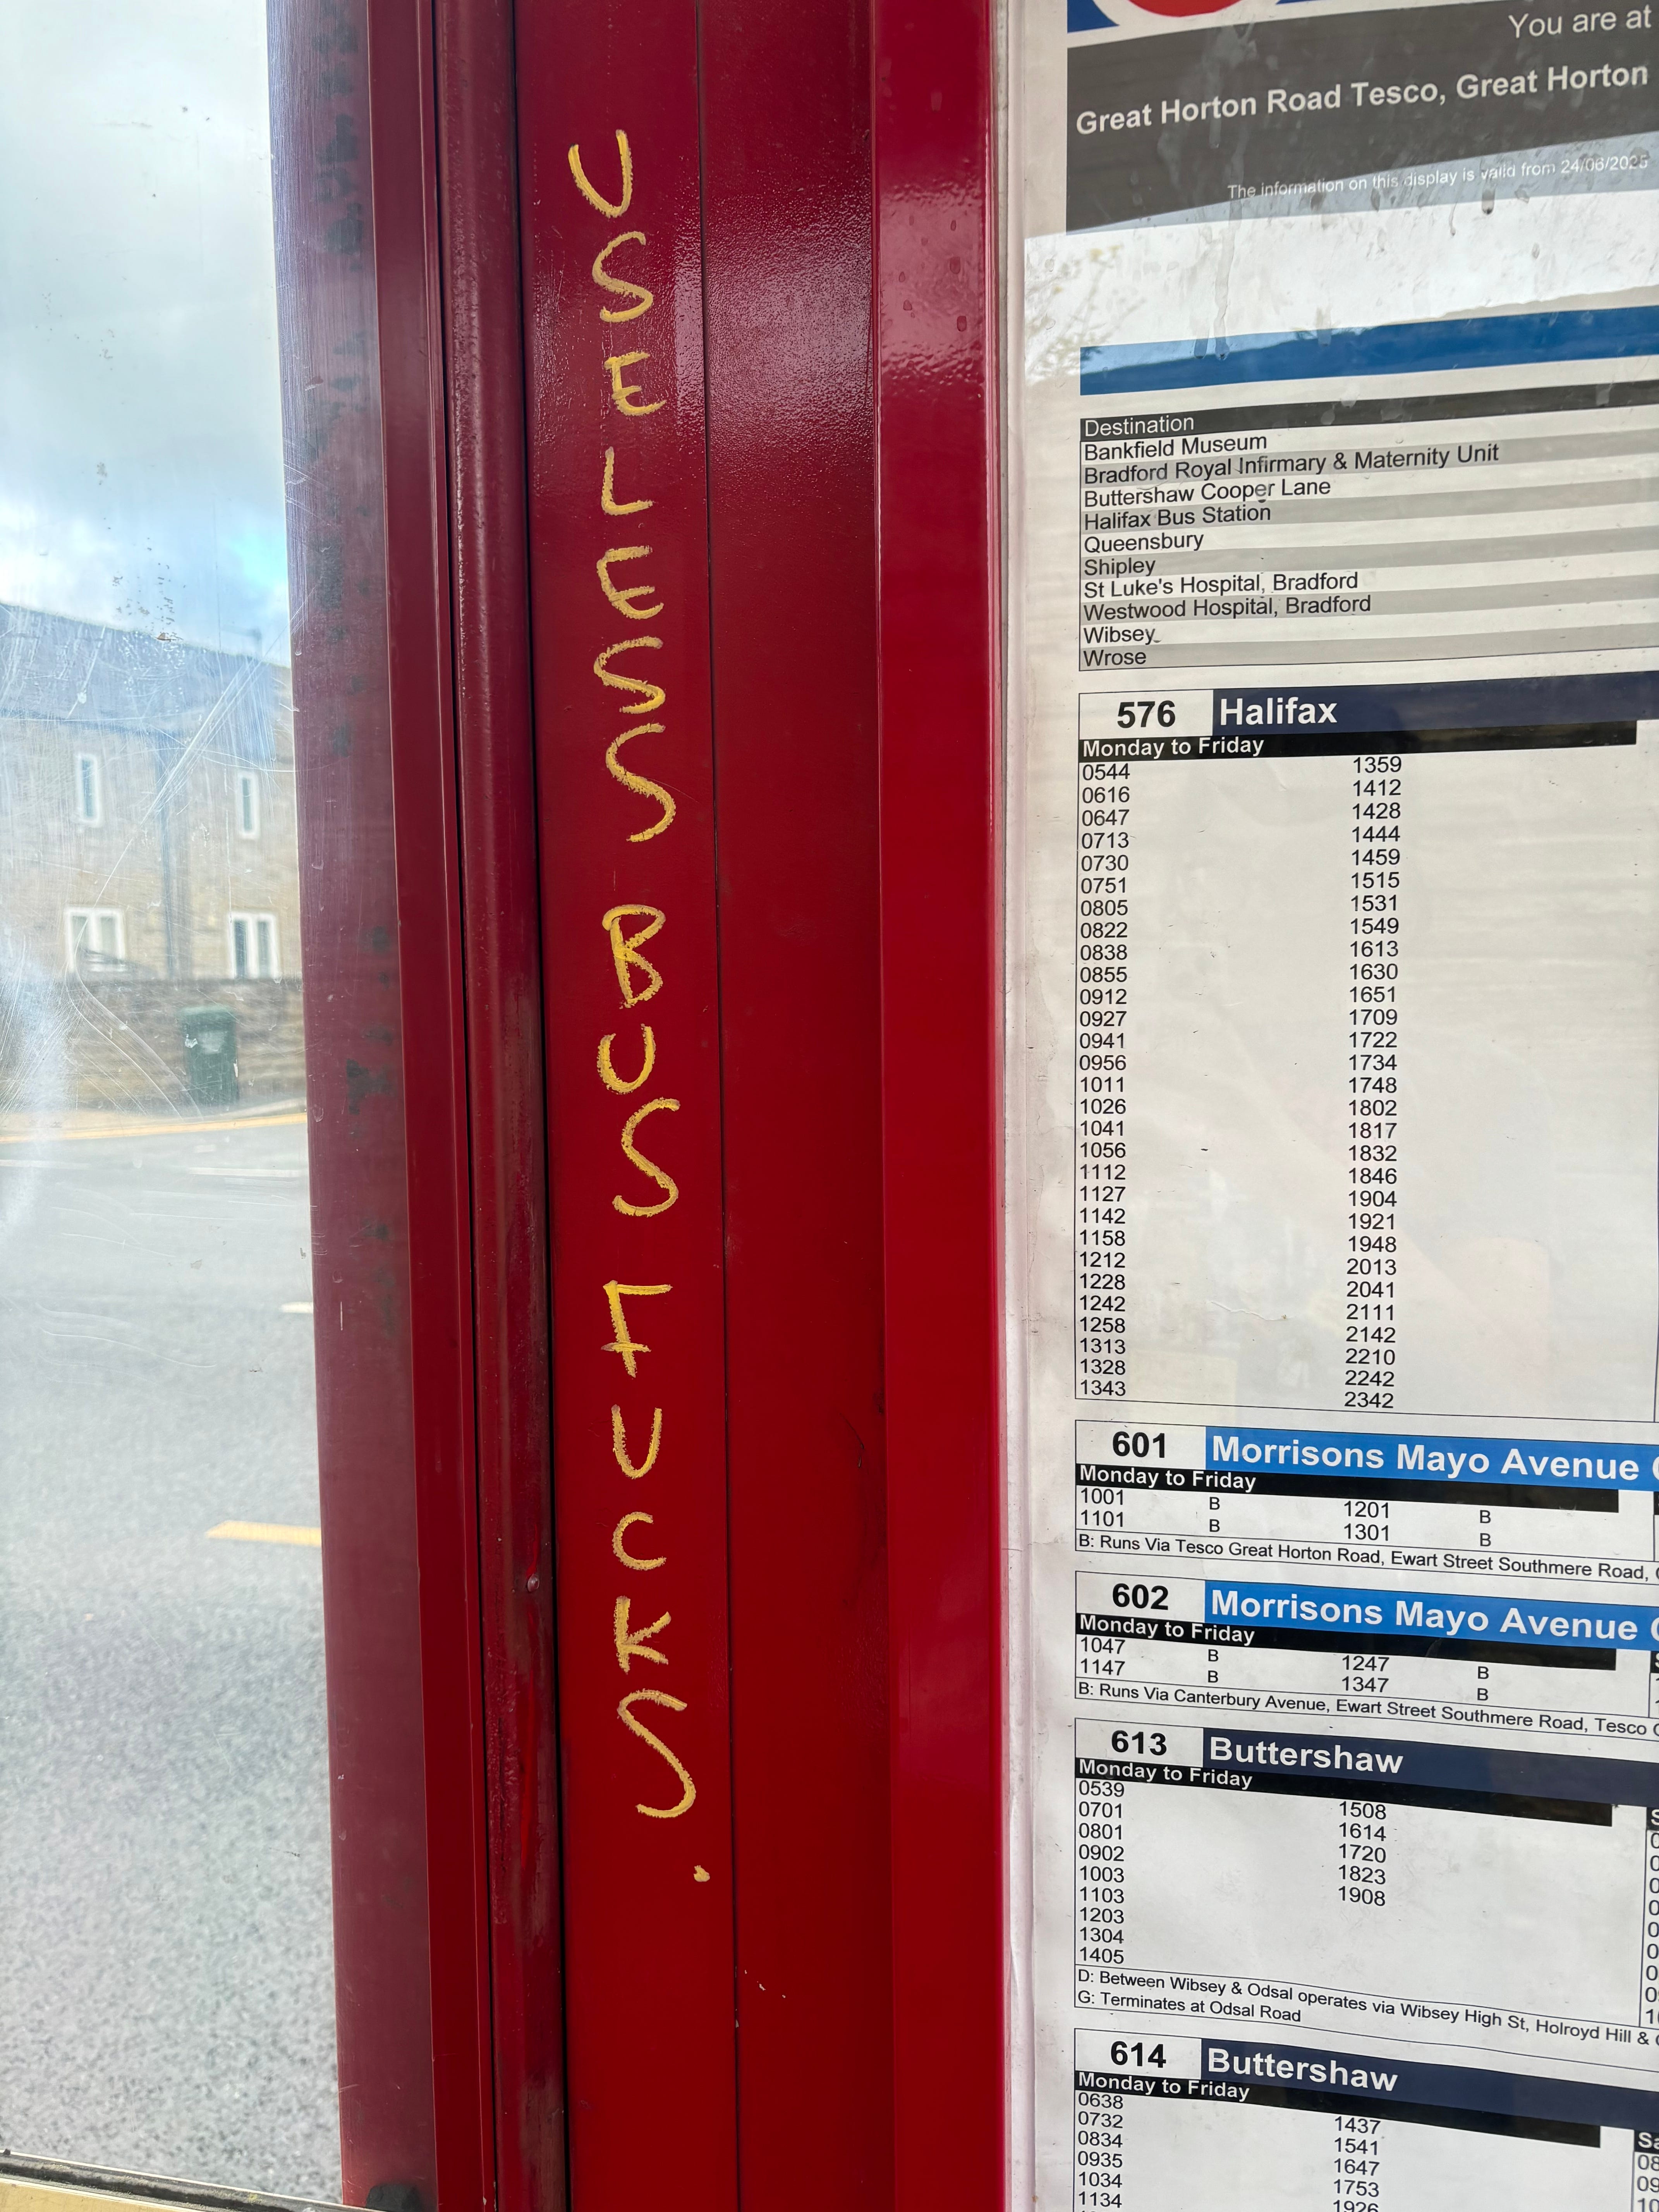 USELESS BUS FUCKS.
You are at
Great Horton Road Tesco, Great Horton
The information on this display is valid from 24/06/2025
Destination
Bankfield Museum
Bradford Royal Infirmary & Maternity Unit
Buttershaw Cooper Lane
Halifax Bus Station
Queensbury
Shipley
St Luke's Hospital, Bradford
Westwood Hospital, Bradford
Wibsey
Wrose
576 Halifax
Monday to Friday
0544 1359
0616 1412
0647 1428
0713 1444
0730 1459
0751 1515
0805 1531
0822 1549
0838 1613
0855 1630
0912 1651
0927 1709
0941 1722
0956 1734
1011 1748
1026 1802
1041 1817
1056 1832
1112 1846
1127 1904
1142 1921
1158 1948
1212 2013
1228 2041
1242 2111
1258 2142
1313 2210
1328 2242
1343 2342
601 Morrisons Mayo Avenue
Monday to Friday
1001 B 1201 B
1101 B 1301 B
B: Runs Via Tesco Great Horton Road, Ewart Street Southmere Road,
602 Morrisons Mayo Avenue
Monday to Friday
1047 B 1247 B
1147 B 1347 B
B: Runs Via Canterbury Avenue, Ewart Street Southmere Road, Tesco
613 Buttershaw
Monday to Friday
0539 1508
0701 1614
0801 1720
0902 1823
1003 1908
1103
1203
1304
1405
D: Between Wibsey & Odsal operates via Wibsey High St, Holroyd Hill &
G: Terminates at Odsal Road
614 Buttershaw
Monday to Friday
0638 1437
0732 1541
0834 1647
0935 1753
1034 1926
1134